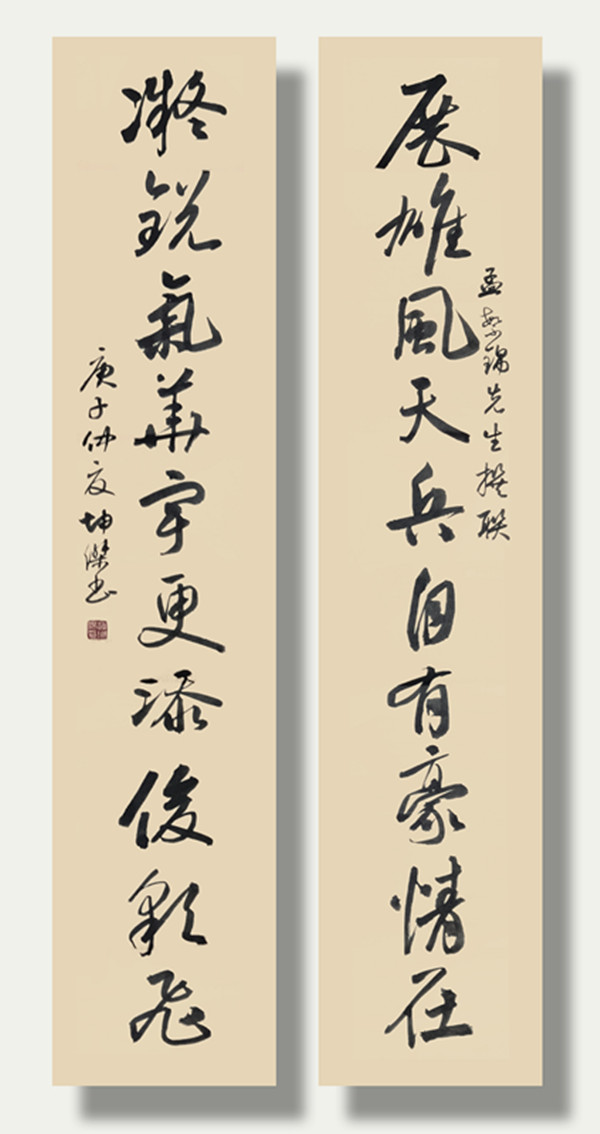 孟繁錦先生撰联
展雄風天兵自有豪情在
凝銳氣華宇更添俊彩飛
庚子仲夏坤傑书